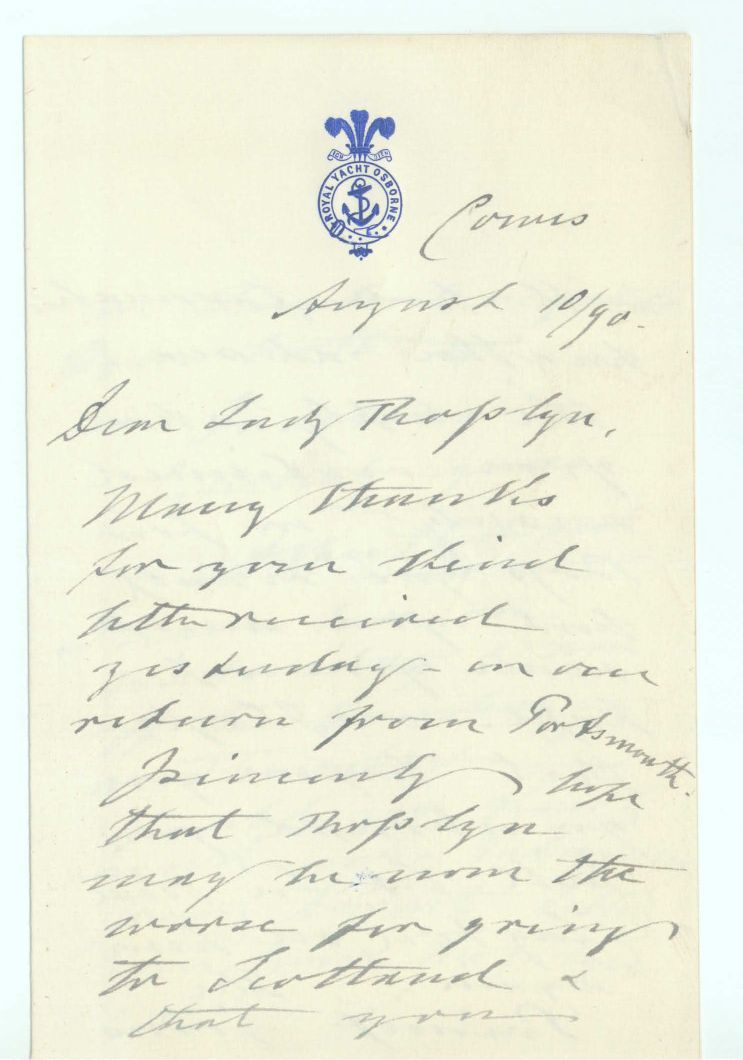 ICH DIEN
ROYAL YACHT OSBORNE
Cowes
August 10/90.
Dear Lady Rosslyn,
Many thanks
for your kind
letter received
yesterday – on our
return from Portsmouth.
I sincerely hope
that Rosslyn
may be none the
worse for going
to Scotland &
that you